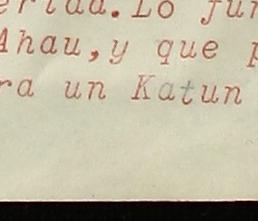 erida. Lo jun
Ahau, y que p
ra un Katun